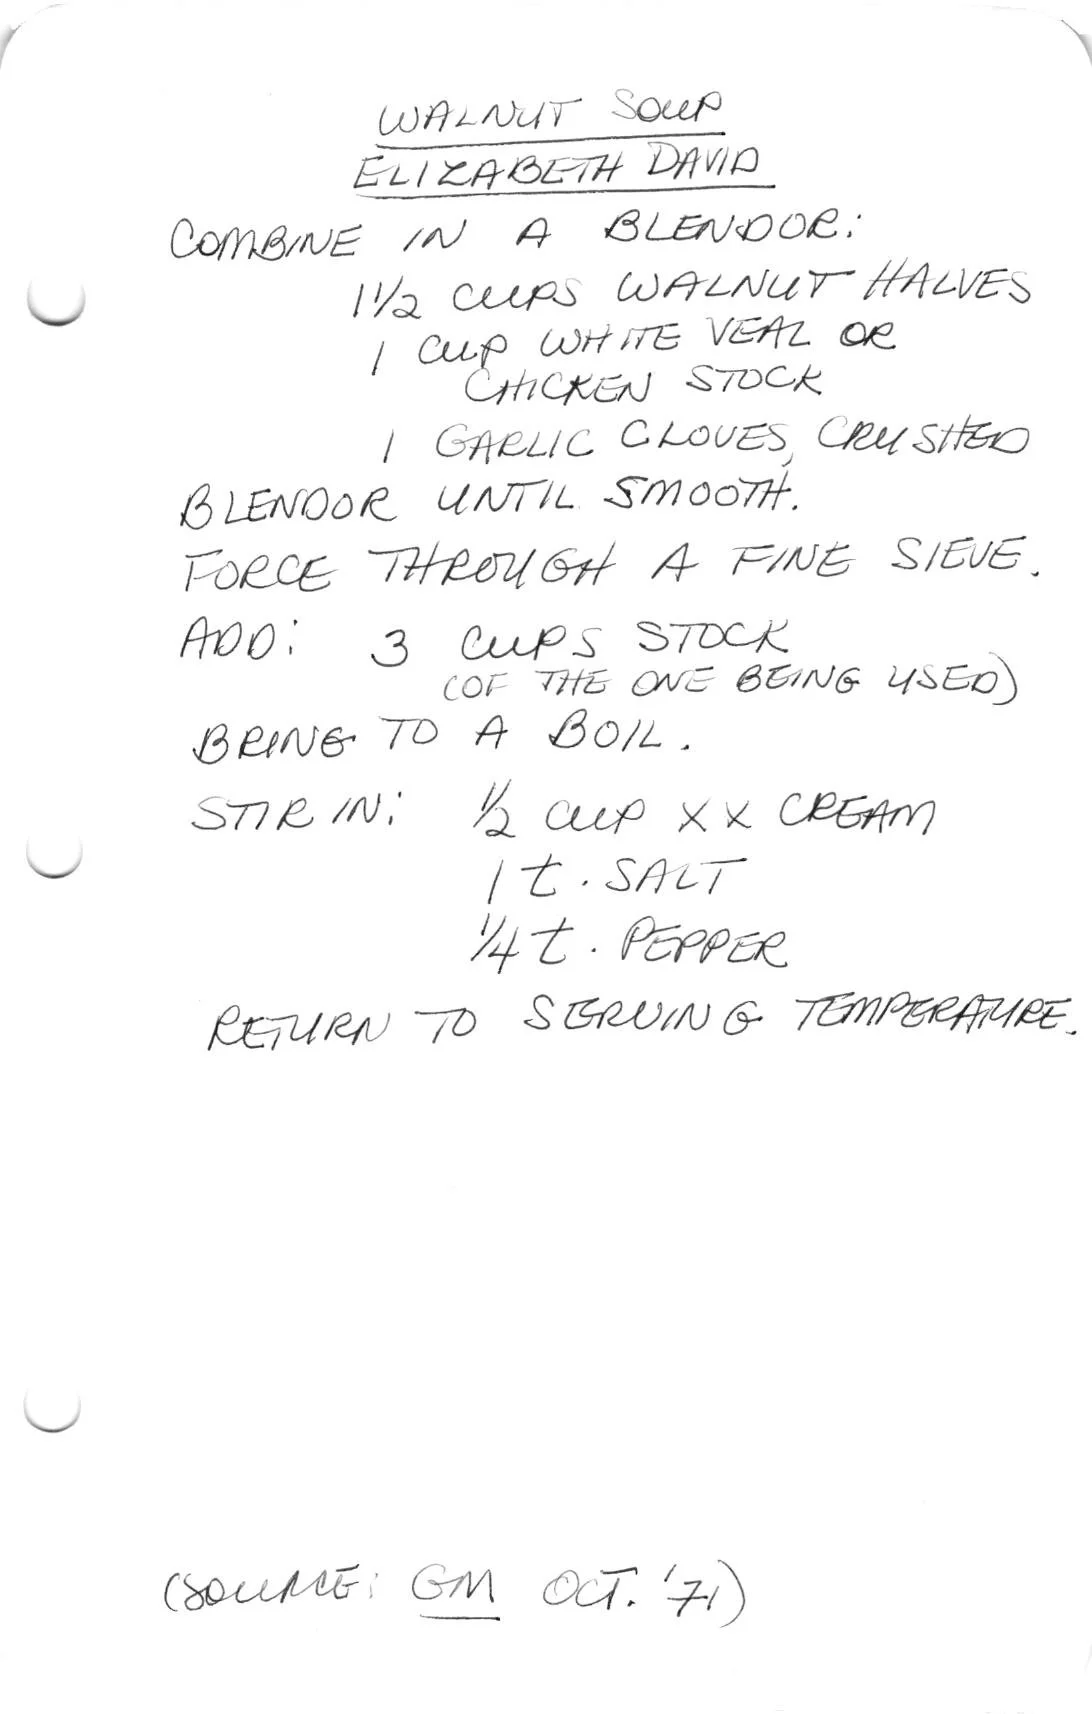 WALNUT SOUP
ELIZABETH DAVID
COMBINE IN A BLENDOR:
1 1/2 CUPS WALNUT HALVES
1 CUP WHITE VEAL OR
CHICKEN STOCK
1 GARLIC CLOVES, CRUSHED
BLENDOR UNTIL SMOOTH.
FORCE THROUGH A FINE SIEVE.
ADD: 3 CUPS STOCK
(OF THE ONE BEING USED)
BRING TO A BOIL.
STIR IN: 1/2 CUP XX CREAM
1 t. SALT
1/4 t. PEPPER
RETURN TO SERVING TEMPERATURE.
(SOURCE: GM OCT. '71)